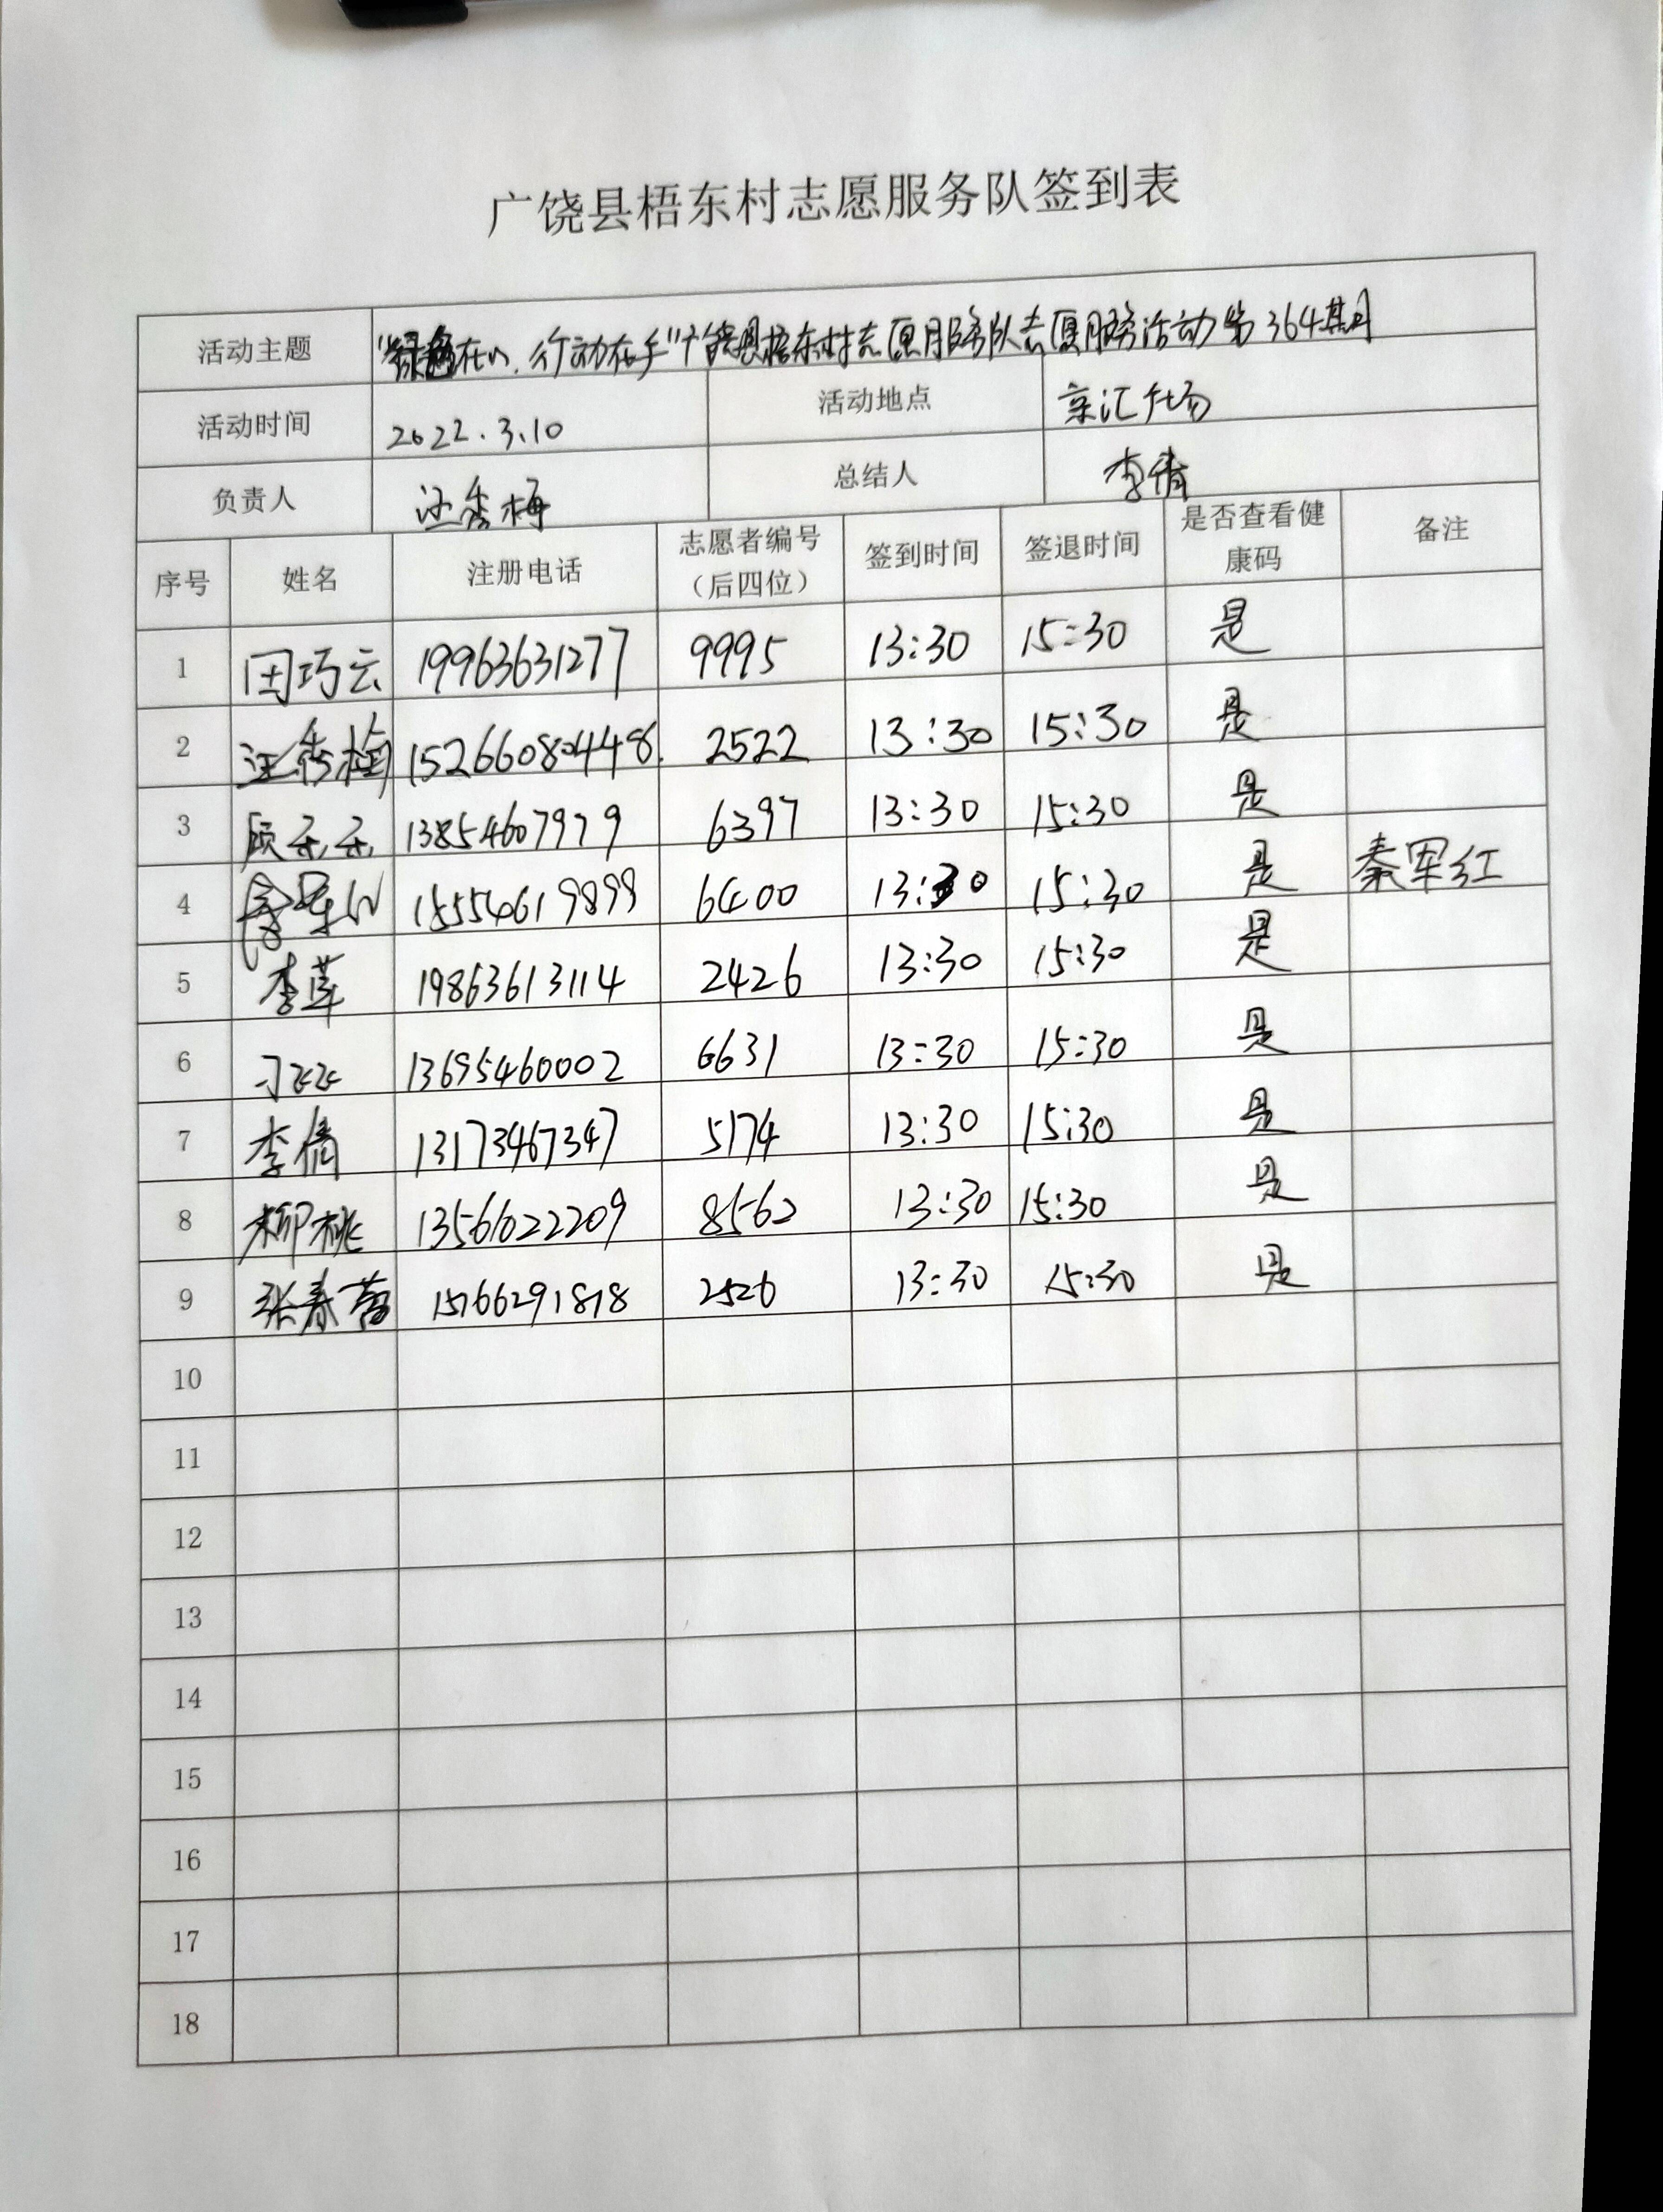 广饶县梧东村志愿服务队签到表
活动主题 "绿色在心,行动在手"广饶县梧东村志愿服务队志愿服务活动第364期
活动时间 2022.3.10 活动地点 京汇广场
负责人 汪秀梅 总结人 李倩
序号 姓名 注册电话 志愿者编号（后四位） 签到时间 签退时间 是否查看健康码 备注
1 田巧云 19963631277 9995 13:30 15:30 是
2 汪秀梅 15266080448 2522 13:30 15:30 是
3 顾 13854607979 6397 13:30 15:30 是
4 秦军红 15554619899 6400 13:30 15:30 是 秦军红
5 李莲 19863613114 2426 13:30 15:30 是
6 刁 13695460002 6631 13:30 15:30 是
7 李倩 13173467347 5174 13:30 15:30 是
8 柳桃 13561022209 8562 13:30 15:30 是
9 张春 15166291818 2526 13:30 15:30 是
10
11
12
13
14
15
16
17
18